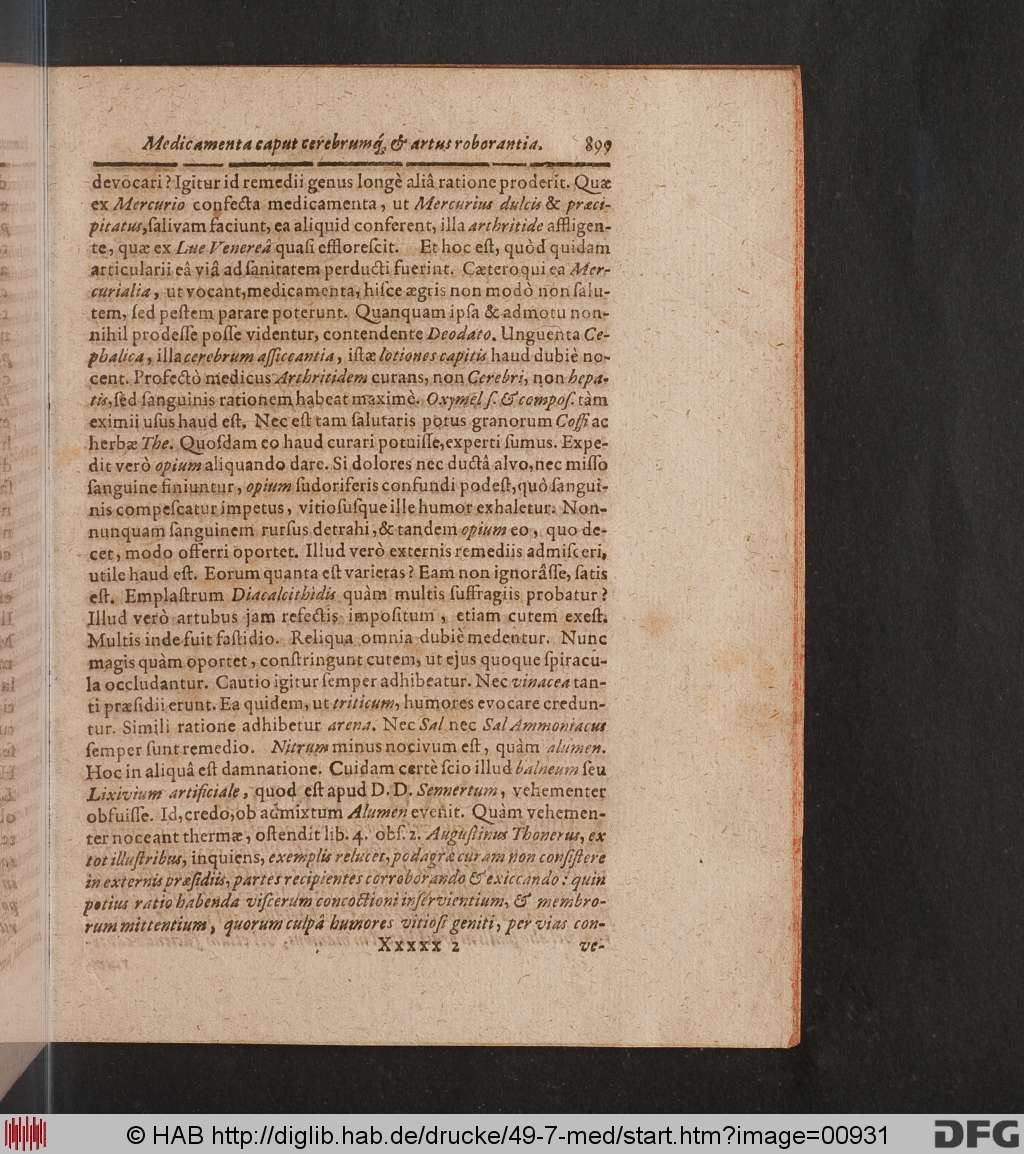 Medicamenta caput cerebrumq́; & artus roborantia. 899
devocari? Igitur id remedii genus longè aliâ ratione proderit. Quæ
ex Mercurio confecta medicamenta, ut Mercurius dulcis & præci-
pitatus, ſalivam faciunt, ea aliquid conferent, illa arthritide affligen-
te, quæ ex Lue Venereâ quaſi effloreſcit. Et hoc eſt, quòd quidam
articularii eâ viâ ad ſanitatem perducti fuerint. Cæteroqui ea Mer-
curialia, ut vocant, medicamenta, hiſce ægris non modò non ſalu-
tem, ſed peſtem parare poterunt. Quanquam ipſa & admotu non-
nihil prodeſſe poſſe videntur, contendente Deodato. Unguenta Ce-
phalica, illa cerebrum aſſiccantia, iſtæ lotiones capitis haud dubiè no-
cent. Profectò medicus Arthritidem curans, non Cerebri, non hepa-
tis, ſed ſanguinis rationem habeat maximè. Oxymel ſ. & compoſ. tàm
eximii uſus haud eſt. Nec eſt tam ſalutaris potus granorum Coffi ac
herbæ The. Quoſdam eo haud curari potuiſſe, experti ſumus. Expe-
dit verò opium aliquando dare. Si dolores nec ductâ alvo, nec miſſo
ſanguine finiuntur, opium ſudoriferis confundi podeſt, quò ſangui-
nis compeſcatur impetus, vitioſuſque ille humor exhaletur. Non-
nunquam ſanguinem rurſus detrahi, & tandem opium eo, quo de-
cet, modo offerri oportet. Illud verò externis remediis admiſceri,
utile haud eſt. Eorum quanta eſt varietas? Eam non ignorâſſe, ſatis
eſt. Emplaſtrum Diacalcithidis quàm multis ſuffragiis probatur?
Illud verò artubus jam refectis impoſitum, etiam cutem exeſt.
Multis inde fuit faſtidio. Reliqua omnia dubiè medentur. Nunc
magis quàm oportet, conſtringunt cutem, ut ejus quoque ſpiracu-
la occludantur. Cautio igitur ſemper adhibeatur. Nec vinacea tan-
ti præſidii erunt. Ea quidem, ut triticum, humores evocare credun-
tur. Simili ratione adhibetur arena. Nec Sal nec Sal Ammoniacus
ſemper ſunt remedio. Nitrum minus nocivum eſt, quàm alumen.
Hoc in aliquâ eſt damnatione. Cuidam certè ſcio illud balneum ſeu
Lixivium artificiale, quod eſt apud D. D. Sennertum, vehementer
obfuiſſe. Id, credo, ob admixtum Alumen evenit. Quàm vehemen-
ter noceant thermæ, oſtendit lib. 4. obſ. 2. Auguſtinus Thonerus, ex
tot illuſtribus, inquiens, exemplis relucet, podagræ curam non conſiſtere
in externis præſidiis, partes recipientes corroborando & exiccando: quin
potius ratio habenda viſcerum concoctioni inſervientium, & membro-
rum mittentium, quorum culpâ humores vitioſi geniti, per vias con-
Xxxxx 2 ve-
© HAB http://diglib.hab.de/drucke/49-7-med/start.htm?image=00931
DFG